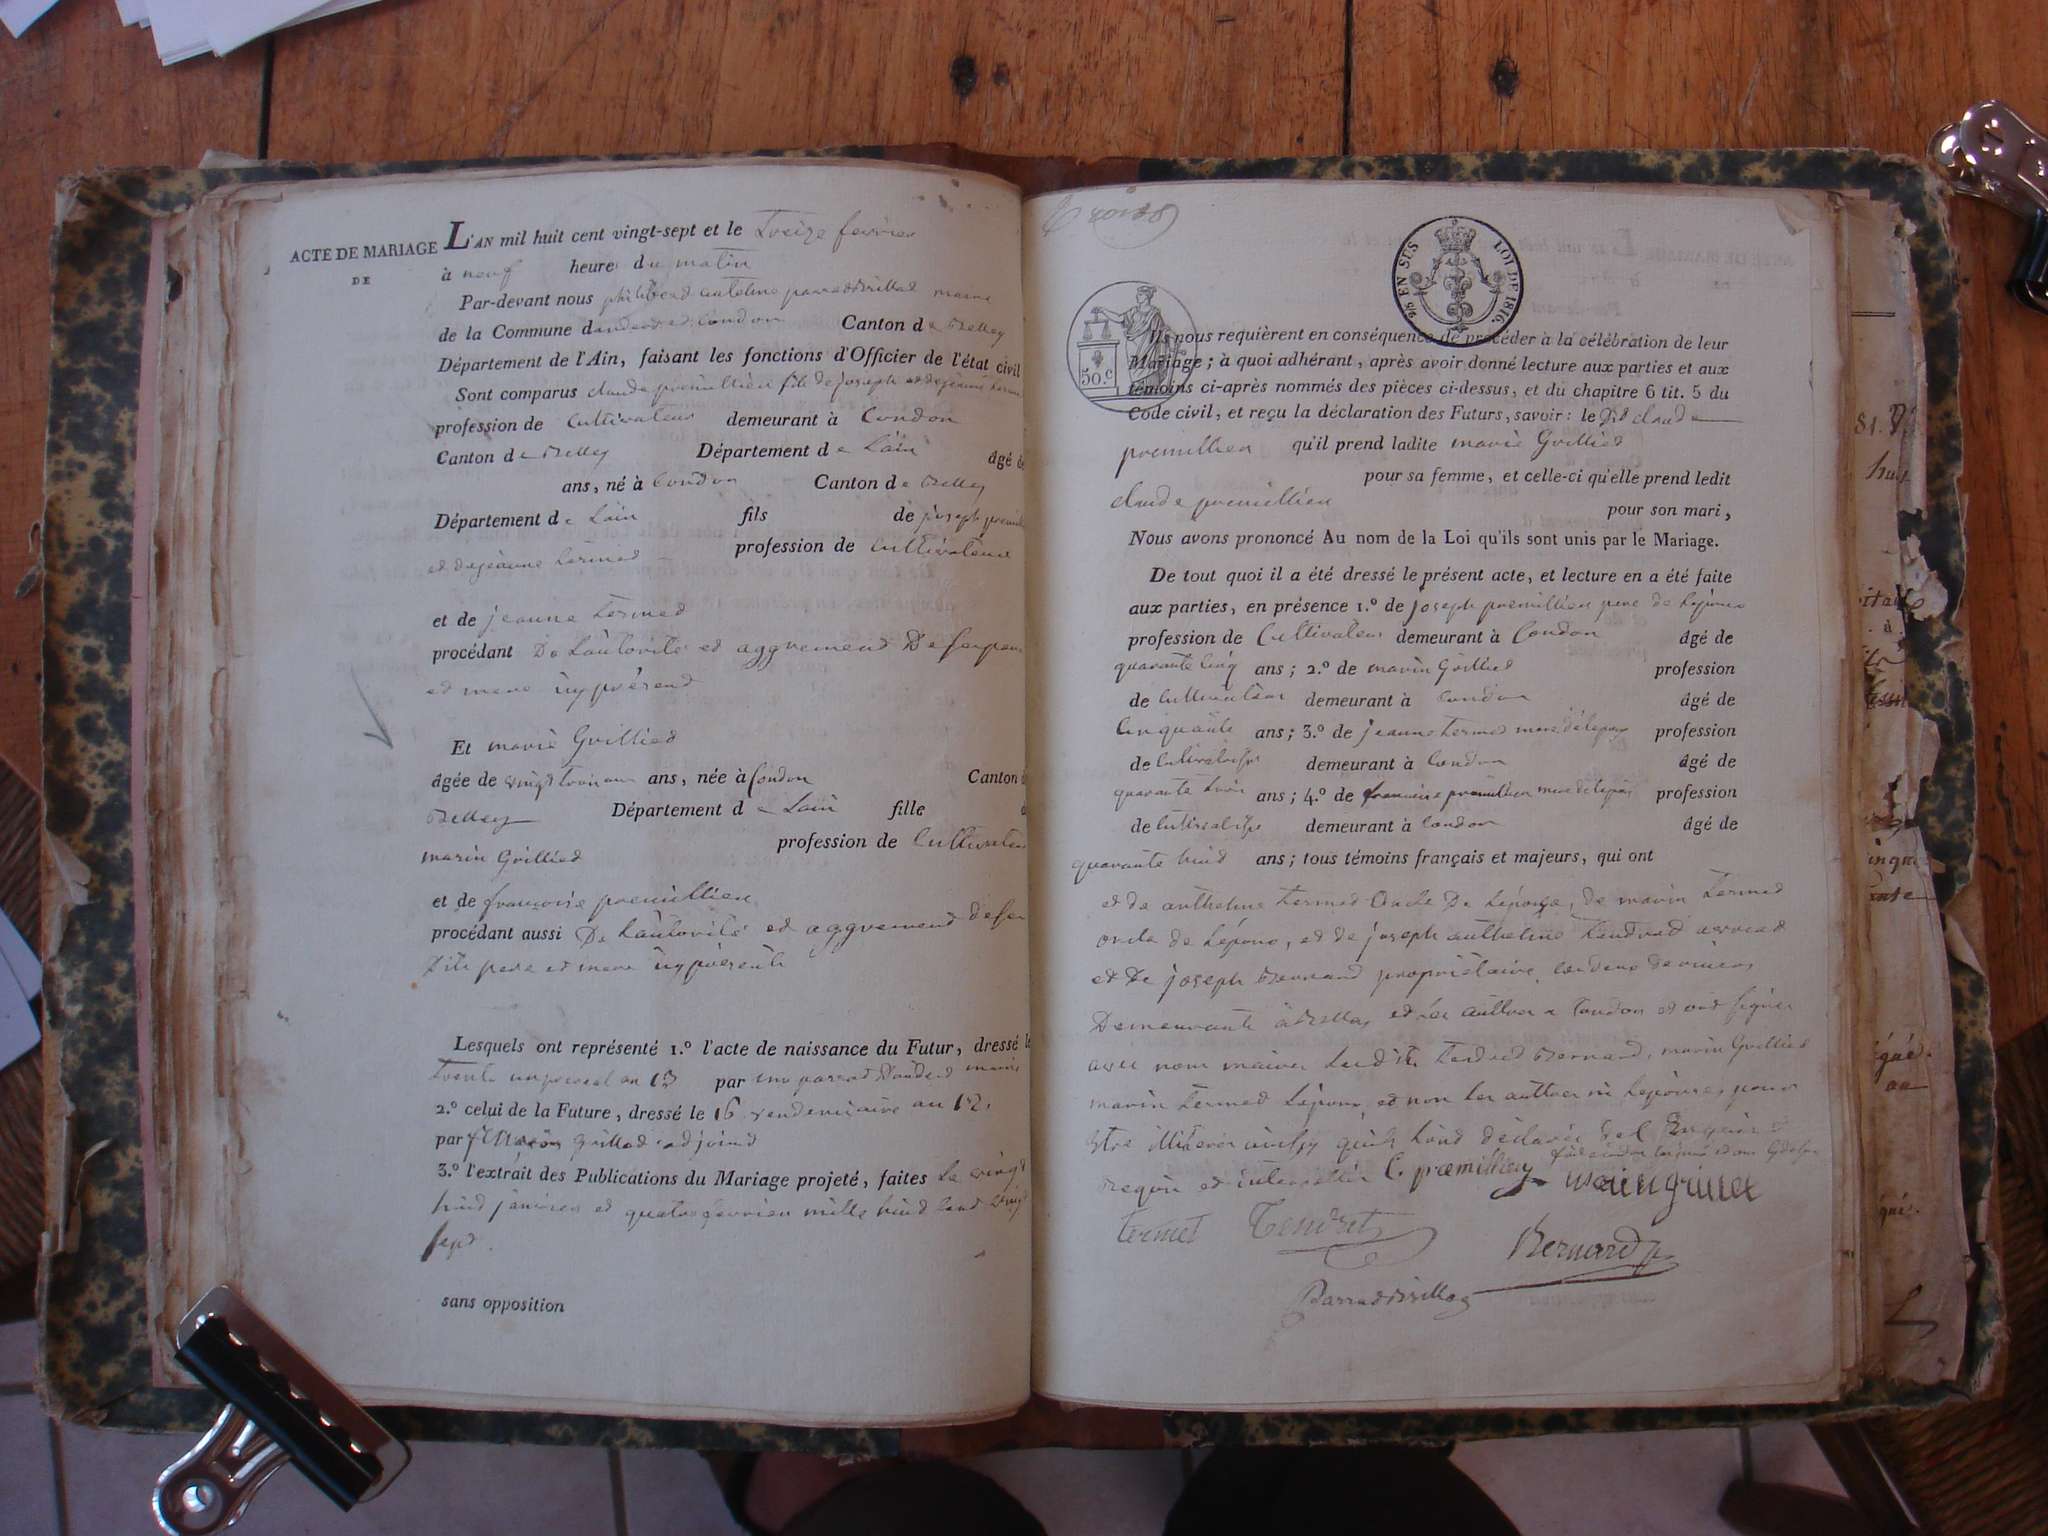 ACTE DE MARIAGE
DE
L'AN mil huit cent vingt-sept et le treize fevrier
à neuf heure du matin
Par-devant nous philiberd antelme parraddbrillat maire
de la Commune dandert et Condon Canton de Belley
Département de l'Ain, faisant les fonctions d'Officier de l'état civil
Sont comparus claude premillieu fils de joseph et de jeanne termed
profession de Cultivateur demeurant à Condon
Canton de Belley Département de Lain âgé de
ans, né à Condon Canton de Belley
Département de Lain fils de joseph
et de jeanne termed profession de Cultivateur
et de jeanne termed
procédant De Lautorité et aggrement De ser pere
et mere icy présend
Et marie Grillied
âgée de vingt trois ans ans, née à Condon Canton
Belley Département de Lain fille
marin Grillied profession de Cultivateur
et de françoise premillieu
procédant aussi De Lautorité et aggrement de ser
dits pere et mere icy présents
Lesquels ont représenté 1.° l'acte de naissance du Futur, dressé le
an 13 par maire
2.° celui de la Future, dressé le 16 vendemiaire an 12.
par Grilled adjoind
3.° l'extrait des Publications du Mariage projeté, faites Le vingt
huid janvier et quatre fevrier mille huid Cent vingt
sept.
sans opposition
25 EN SUS LOI DE 1816
50.c
Ils nous requièrent en conséquence de procéder à la célébration de leur
Mariage; à quoi adhérant, après avoir donné lecture aux parties et aux
témoins ci-après nommés des pièces ci-dessus, et du chapitre 6 tit. 5 du
Code civil, et reçu la déclaration des Futurs, savoir: le Dit claude
premillieu qu'il prend ladite marie Grillied
pour sa femme, et celle-ci qu'elle prend ledit
claude premillieu pour son mari,
Nous avons prononcé Au nom de la Loi qu'ils sont unis par le Mariage.
De tout quoi il a été dressé le présent acte, et lecture en a été faite
aux parties, en présence 1.° de joseph premillieu pere de Lépoux
profession de Cultivateur demeurant à Condon âgé de
quarante Cinq ans; 2.° de marin Grillied profession
de Cultivateur demeurant à Condon âgé de
Cinquante ans; 3.° de jeanne termed mere de lepoux profession
de demeurant à Condon âgé de
quarante trois ans; 4.° de françoise premillieu mere de profession
de demeurant à Condon âgé de
quarante huid ans; tous témoins français et majeurs, qui ont
et de anthelme termed Oncle De Lépouse, de marin termed
oncle de Lépoux, et de joseph anthelme Tendred avocat
et De joseph Bernard propriétaire, Ces deux derniers
Demeurants à Belley et les auttres a Condon et ont signer
avec nous maire Tendred Bernard, marin Grillied
marin termed Lépoux, et non les auttres ni Lépouse, pour
être illiterer ainsy quils Lond déclarés de
requis et interpeller C. premillieu marin grillet
termet Tendret
Bernard
Parraddbrillat